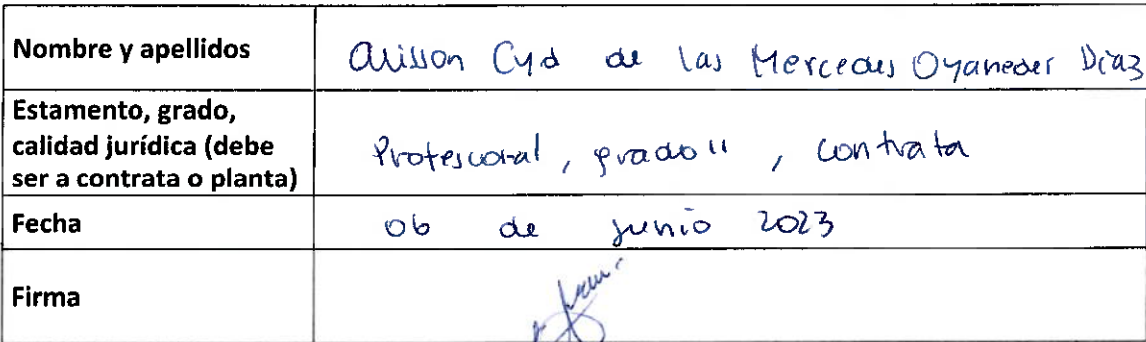 Nombre y apellidos
Alisson Cyd de las Mercedes Oyaneder Díaz
Estamento, grado,
calidad jurídica (debe
ser a contrata o planta)
Profesional, grado 11, contrata
Fecha
06 de junio 2023
Firma